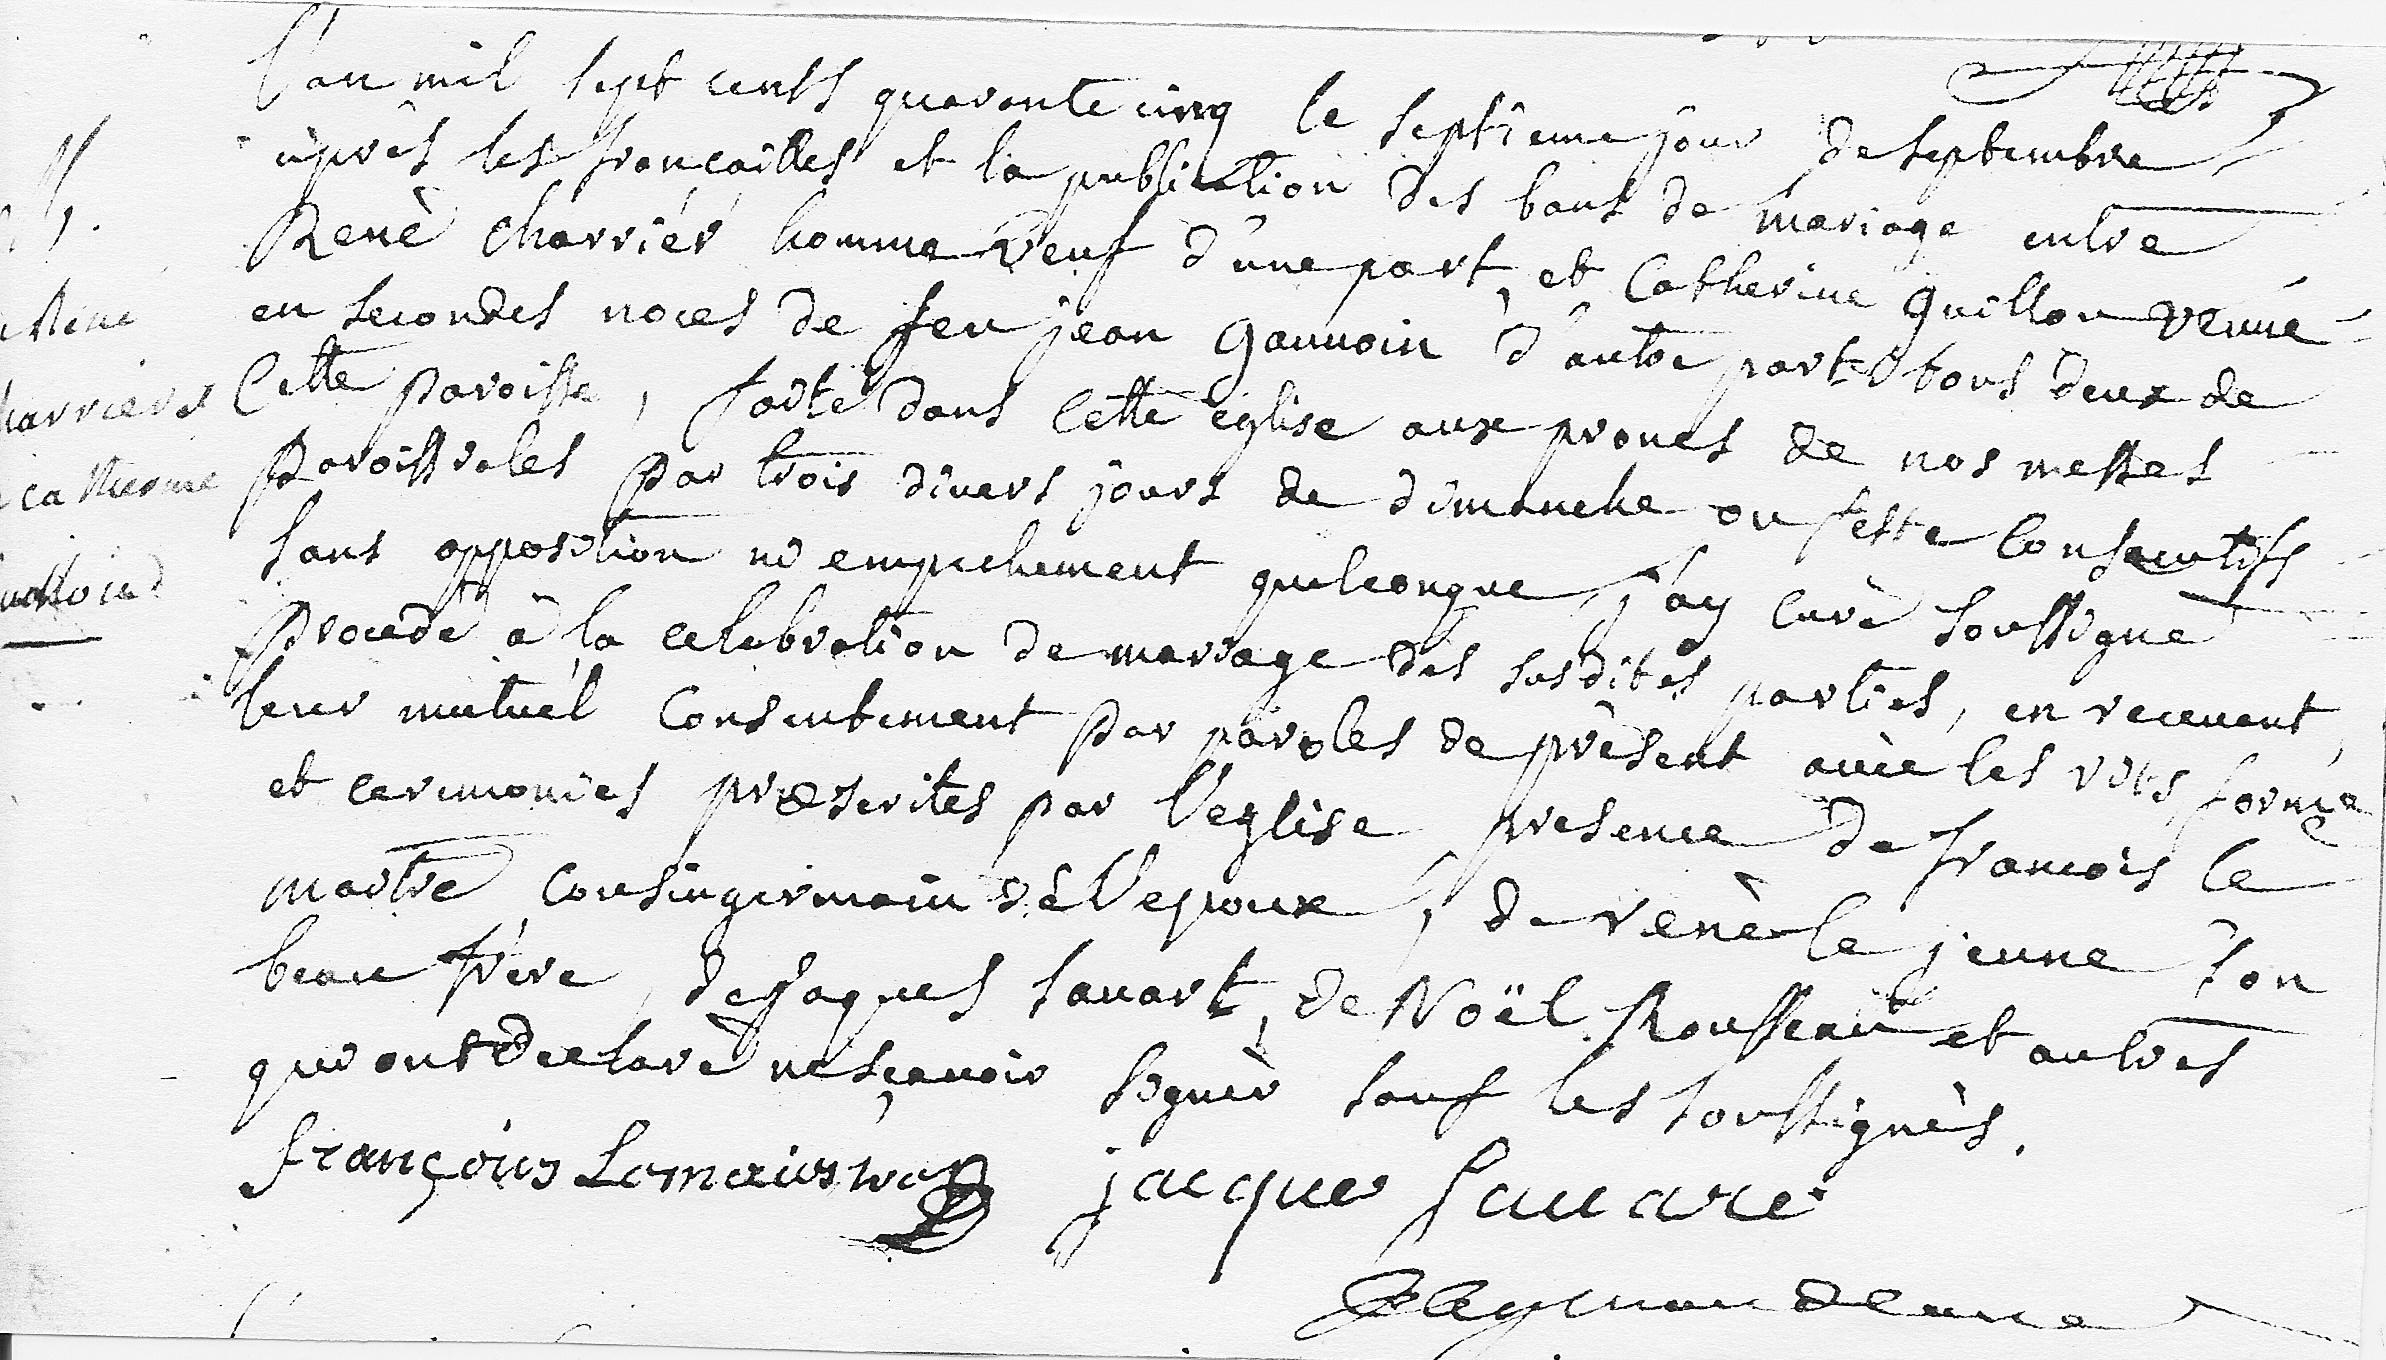 L'an mil sept cents quarante cinq le septieme jour de septembre
après les fiancailles et la publication des bans de mariage entre
Renè charrier homme veuf d'une part, et Catherine Guillon veuue
en secondes noces de feu jean Gauuoin d'autre part tous deux de
Cette paroisse, faite dans cette église aux prones de nos messes
paroissiales par trois divers jours de dimanche ou feste Consecutifs
sans opposition ni empechement quelconque, j'ay curè soussignè
procedé à la celebration de mariage des susdites parties, en receuant
leur mutuel Consentement par paroles de présent auec les rits, forme
et ceremonies præscrites par l'eglise presence de francois le
maitre Cousin germain de l'epoux, de renè le jeune son
beau frère, de Jaques sauart, de Noël Rousseau et autres
qui ont declarè ne sçauoir signer sauf les soussignès.
françois Lemaistre jacques Sauare
Rene
harriere
catherine